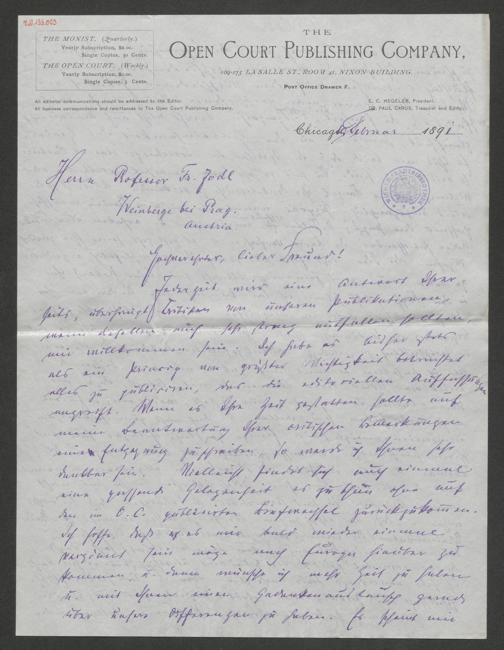 THE MONIST. (Quarterly.)
Yearly Subscription, $2.00.
Single Copies, 50 Cents.
THE OPEN COURT. (Weekly.)
Yearly Subscription, $2.00.
Single Copies, 5 Cents.
THE
OPEN COURT PUBLISHING COMPANY,
169-175 LA SALLE ST., ROOM 41, NIXON BUILDING.
POST OFFICE DRAWER F.
All editorial communications should be addressed to the Editor.
All business correspondence and remittances to The Open Court Publishing Company.
E. C. HEGELER, President.
DR. PAUL CARUS, Treasurer and Editor.
Chicago, Februar 1891
Herrn Professor Fr. Jodl
Weinberge bei Prag.
Austria
Hochverehrter, lieber Freund!
Jederzeit wird mir eine Antwort Ihrer-
seits, überhaupt Kritiken von unseren Publikationen,
wenn dieselben auch sehr streng ausfallen sollten
mir willkommen sein. Ich habe es bisher stets
als ein Prinzip von größter Wichtigkeit betrachtet
alles zu publiziren, das die editoriellen Auffassungen
angreift. Wenn es Ihre Zeit gestatten sollte auf
meine Beantwortung Ihrer kritischen Bemerkungen
eine Entgegnung zu schreiben, so werde ich Ihnen sehr
dankbar sein. Vielleicht findet sich auch einmal
eine passende Gelegenheit es zu thun ohne auf
den im O. C. publizirten Briefwechsel zurückzukommen.
Ich hoffe, daß es mir bald wieder einmal
vergönnt sein möge nach Europa hinüber zu
kommen, u. dann wünsche ich mehr Zeit zu haben
u. mit Ihnen einen Gedankenaustausch gerade
über unsere Differenzen zu haben. Es scheint mir